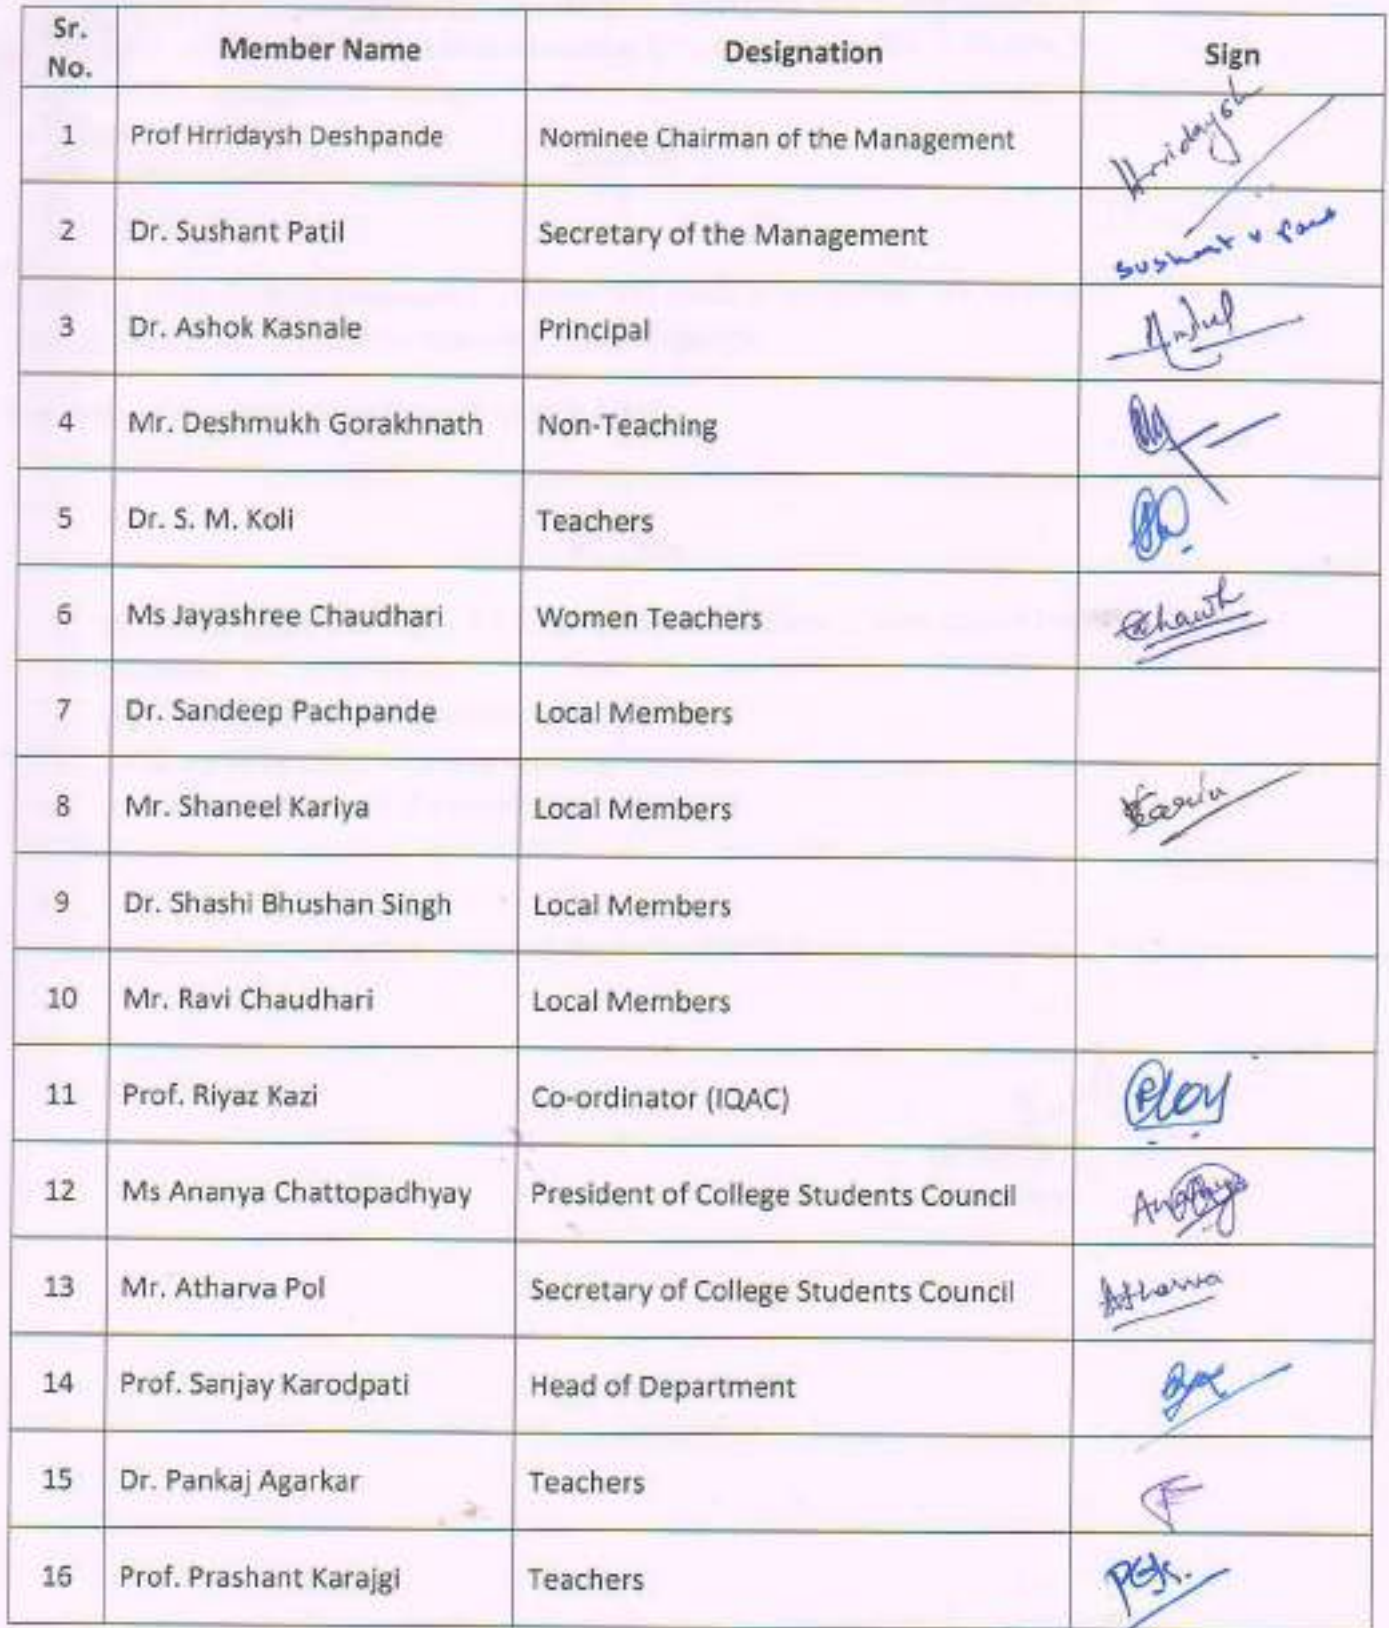 Sr. No. Member Name Designation Sign
1 Prof Hrridaysh Deshpande Nominee Chairman of the Management Hrridaysh
2 Dr. Sushant Patil Secretary of the Management Sushant v
3 Dr. Ashok Kasnale Principal
4 Mr. Deshmukh Gorakhnath Non-Teaching
5 Dr. S. M. Koli Teachers
6 Ms Jayashree Chaudhari Women Teachers
7 Dr. Sandeep Pachpande Local Members
8 Mr. Shaneel Kariya Local Members
9 Dr. Shashi Bhushan Singh Local Members
10 Mr. Ravi Chaudhari Local Members
11 Prof. Riyaz Kazi Co-ordinator (IQAC)
12 Ms Ananya Chattopadhyay President of College Students Council
13 Mr. Atharva Pol Secretary of College Students Council Atharva
14 Prof. Sanjay Karodpati Head of Department
15 Dr. Pankaj Agarkar Teachers
16 Prof. Prashant Karajgi Teachers